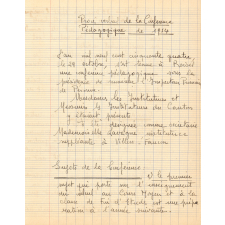 Procès verbal de la Conférence
Pédagogique de 1954
L'an mil neuf cent cinquante quatre
le 29 octobre, s'est tenue à
une conférence pédagogique sous la
présidence de monsieur l'Inspecteur Primaire
de
Mesdames les Institutrices et
Messieurs les Instituteurs du Canton
y étaient présents
A été désignée comme secrétaire
Mademoiselle Lavergne institutrice
suppléante à
Sujets de la Conférence
Le premier
sujet qui porte sur l'enseignement
du calcul au Cours Moyen et à la
classe de Fin d'Etudes est une prépa
ration à l'année suivante.